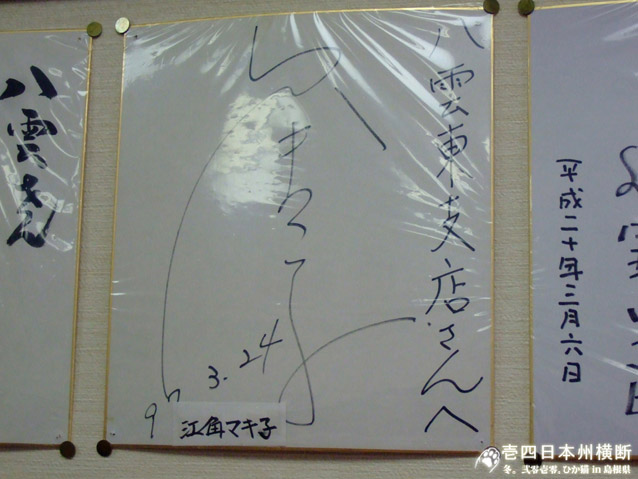 八雲東支店さんへ
マキ子
97 3.24
江角マキ子
八雲さん
平成二十年三月六日
壱四日本州横断
冬。弐零壱零、ひか猫 in 島根県